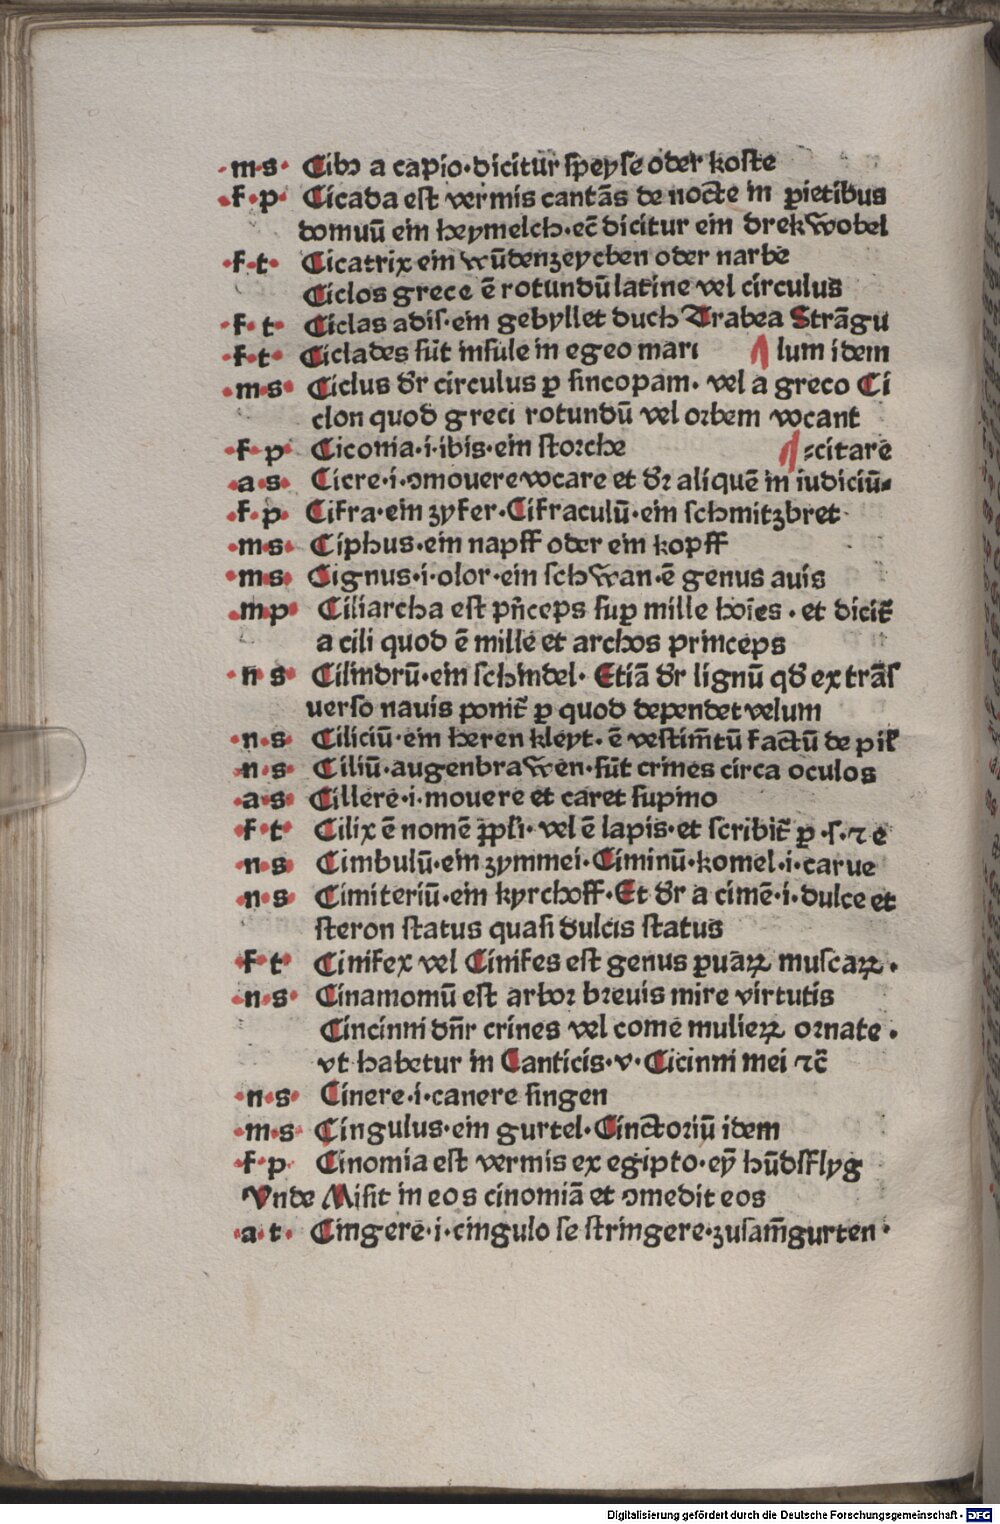 ·m·s· Cibꝯ a capio·dicitur ſpeyſe oder koſte
·f·p· Cicada eſt vermis cantãs de nocte in ꝑietibus
domuũ ein heymelch·ec̃ dicitur ein drekwobel
·f·t· Cicatrix ein wũdenzeychen oder narbe
Ciclos grece ẽ rotundũ latine vel circulus
·f·t· Ciclas adiſ·ein gehyllet duch Trabea Strãgu
·f·t· Ciclades ſũt inſule in egeo mari ¶ lum idem
·m·s· Ciclus dr̃ circulus ꝑ ſincopam· vel a greco Ci
clon quod greci rotundũ vel orbem vocant
·f·p· Ciconia·i·ibis·ein ſtorche ¶ ⸗citare
·a·s· Ciere·i·ꝯmouere vocare et dr̃ aliquẽ in iudiciũ⸗
·f·p· Cifra·ein zyfer·Cifraculũ·ein ſchmitzbret·
·m·s· Ciphus·ein napff oder ein kopff
·m·s· Cignus·i·olor·ein ſchwan·ẽ genus auis
·m·p· Ciliarcha eſt pñceps ſuꝑ mille hoĩes·et dicit̃
a cili quod ẽ mille et archos princeps
·n·s· Cilindrũ·ein ſchindel· Etiã dr̃ lignũ qd̃ ex trãſ
uerſo nauis ponit̃ ꝑ quod dependet velum
·n·s· Ciliciũ·ein heren kleyt·ẽ veſtim̃tũ factũ de pil̃
·n·s· Ciliũ·augenbrawen·ſũt crines circa oculos
·a·s· Cillere·i·mouere et caret ſupino
·f·t· Cilix ẽ nomẽ ꝓpli·vel ẽ lapis·et ſcribit̃ ꝑ·ſ·⁊ e
·n·s· Cimbulũ·ein zymmei·Ciminũ·komel·i·carue
·n·s· Cimiteriũ·ein kyrchoff·Et dr̃ a cimẽ·i·dulce et
ſteron ſtatus quaſi dulcis ſtatus
·f·t· Cinifex vel Cinifes eſt genus ꝑuaꝝ muſcaꝝ·
·n·s· Cinamomũ eſt arbor breuis mire virtutis
Cincinni dñr crines vel come mulieꝝ ornate·
vt habetur in Canticis·v·Cicinni mei ⁊c̃
·n·s· Cinere·i·canere ſingen
·m·s Cingulus·ein gurtel·Cinctoriũ idem
·f·p· Cinomia eſt vermis ex egipto·eỹ hũdſflyg
Vnde Miſit in eos cinomiã et ꝯmedit eos
·a·t· Cingere·i·cingulo ſe ſtringere·zuſam̃gurten·
Digitalisierung gefördert durch die Deutsche Forschungsgemeinschaft - DFG